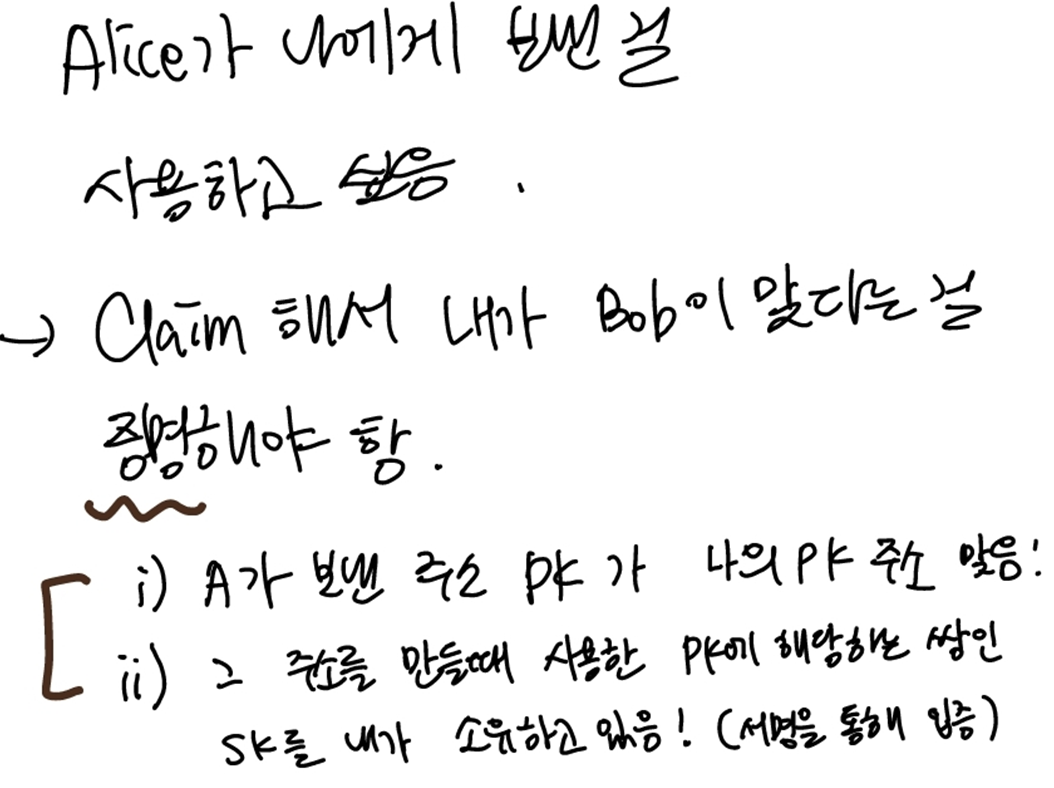 Alice가 나에게 보낸 걸
사용하고 싶음 .
→ Claim 해서 내가 Bob이 맞다는 걸
증명해야 함 .
i) A가 보낸 주소 PK 가 나의 PK 주소 맞음!
ii) 그 주소를 만들때 사용한 PK에 해당하는 쌍인
SK를 내가 소유하고 있음! (서명을 통해 입증)